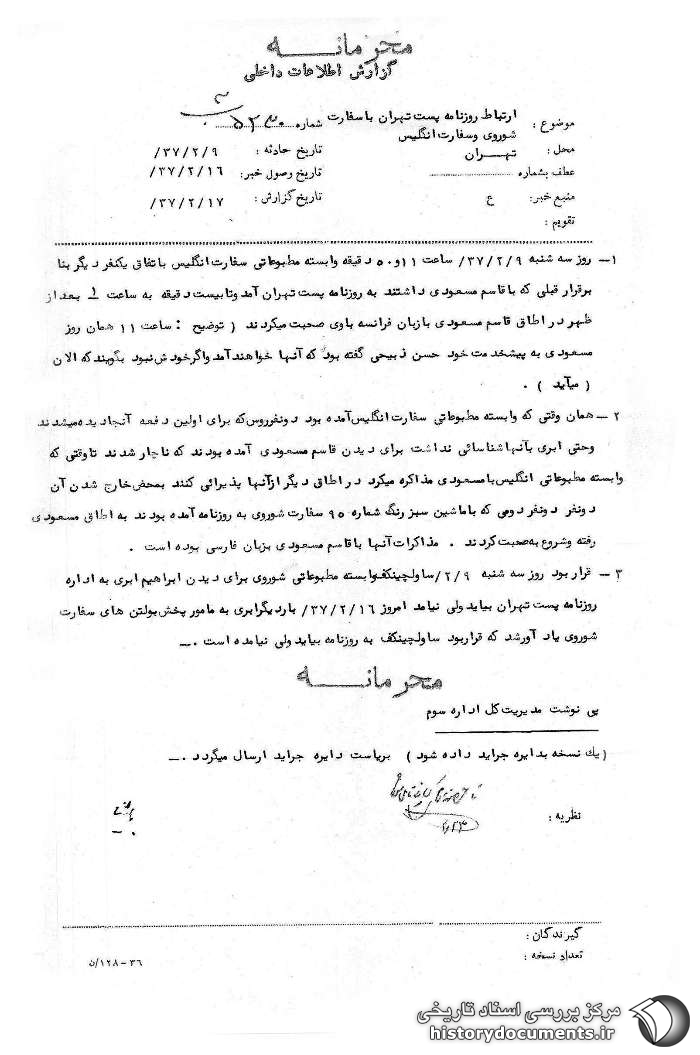 محرمانــــه
گزارش اطلاعات داخلی
موضوع : ارتباط روزنامه پست تهران با سفارت شوروی و سفارت انگلیس
شماره
محل : تهــران
تاریخ حادثه : ۳۷/۲/۹/
عطف بشماره
تاریخ وصول خبر: ۳۷/۲/۱۶/
منبع خبر: ع
تاریخ گزارش : ۳۷/۲/۱۷/
تقویم :
۱ــ روز سه شنبه ۳۷/۲/۹/ ساعت ۱۱ و ۵۰ دقیقه وابسته مطبوعاتی سفارت انگلیس باتفاق یکنفر دیگر بنا
برقرار قبلی که با قاسم مسعودی داشتند به روزنامه پست تهران آمد و تا بیست دقیقه به ساعت ۱ بعد از
ظهر در اطاق قاسم مسعودی با زبان فرانسه با وی صحبت میکردند ( توضیح : ساعت ۱۱ همان روز
مسعودی به پیشخدمت خود حسن ذبیحی گفته بود که آنها خواهند آمد و اگر خودش نبود بگویند که الان
( میآید ) .
۲ــ همان وقتی که وابسته مطبوعاتی سفارت انگلیس آمده بود دونفر روس که برای اولین دفعه آنجا دیده میشدند
وحتی ابری بآنها شناسائی نداشت برای دیدن قاسم مسعودی آمده بودند که ناچار شدند تا وقتی که
وابسته مطبوعاتی انگلیس با مسعودی مذاکره میکرد در اطاق دیگر از آنها پذیرائی کنند بمحض خارج شدن آن
دونفر دونفر دومی که با ماشین سبز رنگ شماره ۹۵ سفارت شوروی به روزنامه آمده بودند به اطاق مسعودی
رفته وشروع به صحبت کردند . مذاکرات آنها با قاسم مسعودی بزبان فارسی بوده است .
۳ــ قرار بود روز سه شنبه ۲/۹/ ساولچینکف وابسته مطبوعاتی شوروی برای دیدن ابراهیم ابری به اداره
روزنامه پست تهران بیاید ولی نیامد امروز ۳۷/۲/۱۶/ بار دیگر ابری به مامور پخش بولتن های سفارت
شوروی یاد آور شد که قرار بود ساولچینکف به روزنامه بیاید ولی نیامده است .ــ
محرمانــــه
پی نوشت مدیریت کل اداره سوم
(یک نسخه بدایره جراید داده شود ) بریاست دایره جراید ارسال میگردد .ــ
نظریه :
گیرندگان :
تعداد نسخه :
۳۶ - ۱۲۸/ن
مرکز بررسی اسناد تاریخی
historydocuments.ir